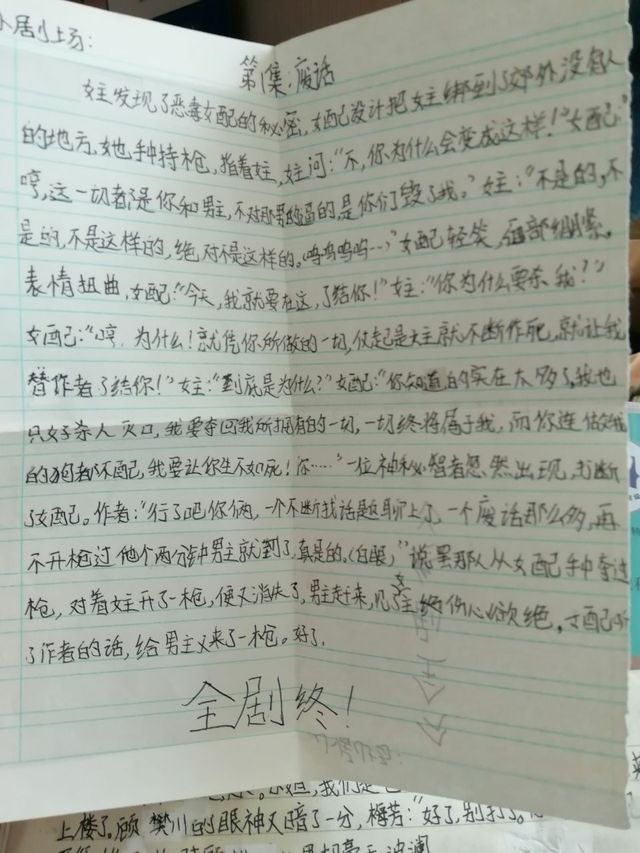 小剧场:
第1集:废话
女主发现了恶毒女配的秘密,女配设计把女主绑到了郊外没有人
的地方,她手持枪,指着女主,女主问:“不,你为什么会变成这样!”女配:“
哼,这一切都是你和男主,不对那男的逼的是你们毁了我。”女主:“不是的,不
是的,不是这样的,绝对不是这样的。(呜呜呜呜…)”女配轻笑,面部绷紧。
表情扭曲,女配:“今天,我就要在这,了结你!”女主:“你为什么要杀我?”
女配:“哼,为什么!就凭你所做的一切,仗起是女主就不断作死,就让我
替作者了结你!”女主:“到底是为什么?”女配:“你知道的实在太多了,我也
只好杀人灭口,我要夺回我所拥有的一切,一切终将属于我,而你连做我
的狗都不配,我要让你生不如死!你……”一位神秘智者忽然出现,打断
了女配。作者:“行了吧你俩,一个不断找话题聊上了,一个废话那么多,再
不开枪过他个两分钟男主就到了,真是的。(白眼)”说罢那人从女配手中夺过
枪,对着女主开了一枪,便又消失了,男主赶来,见女主绝伤心欲绝,女配听
了作者的话,给男主又来了一枪。好了,
全剧终!
上楼了。顾樊川的眼神又暗了一分,梅芳:“好了,别打了。